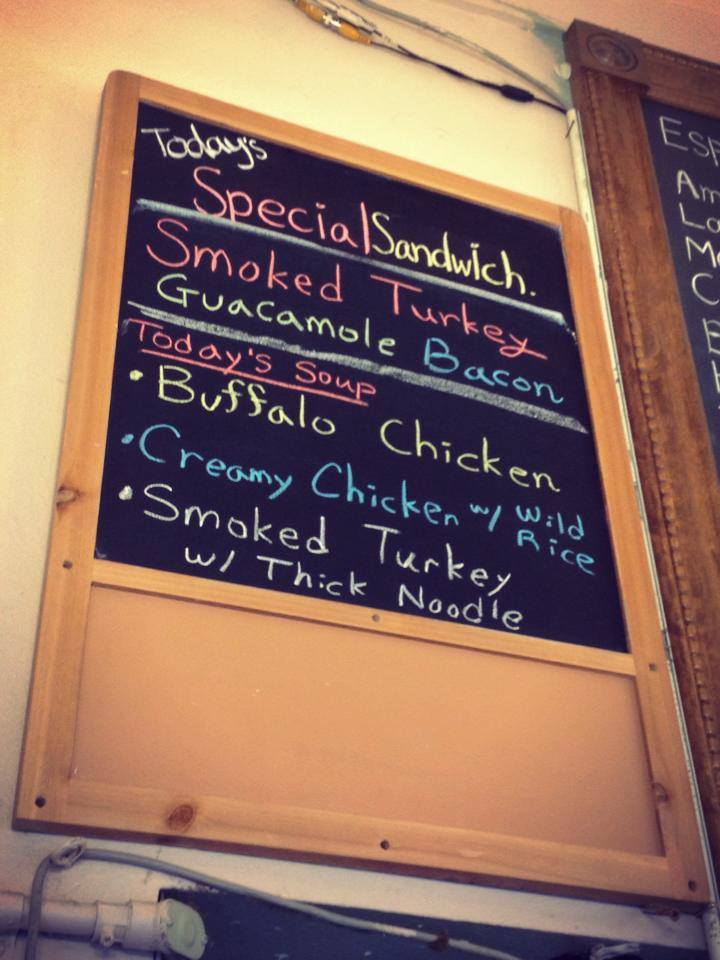 Today's
Special Sandwich.
Smoked Turkey
Guacamole Bacon
Today's Soup
• Buffalo Chicken
• Creamy Chicken w/ Wild
Rice
• Smoked Turkey
w/ Thick Noodle